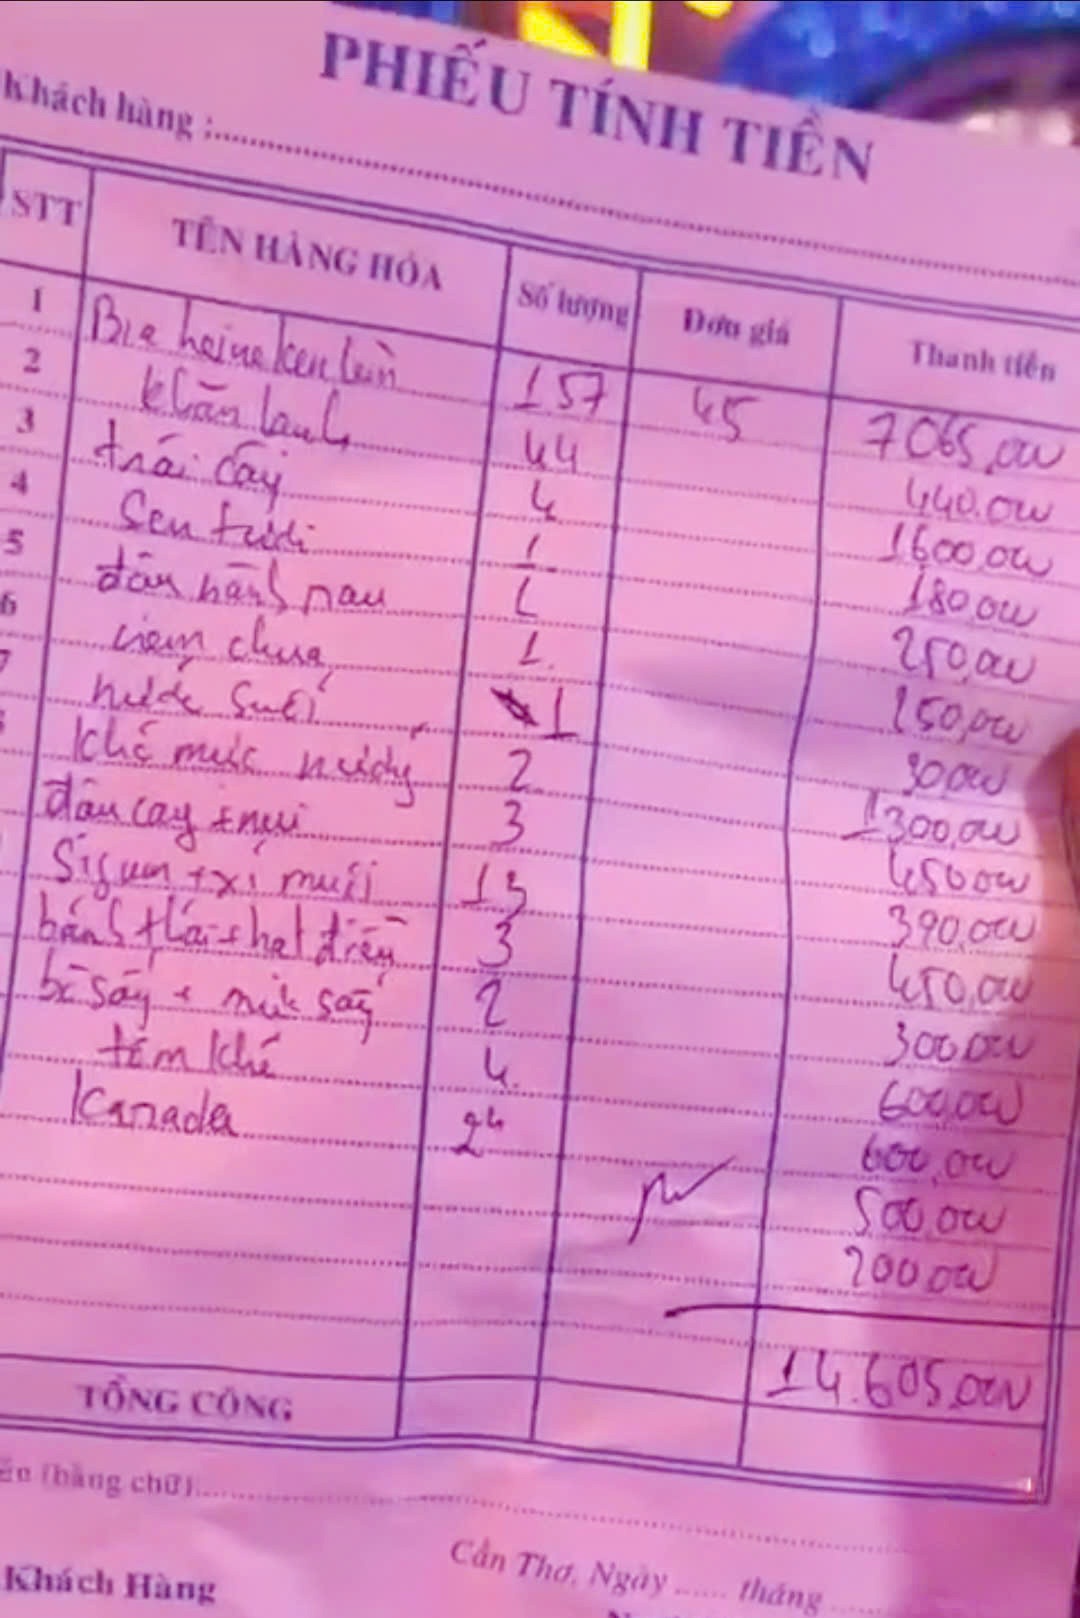 PHIẾU TÍNH TIỀN
Khách hàng :
STT TÊN HÀNG HÓA Số lượng Đơn giá Thành tiền
1 Bia heineken lùn 157 45 7065,000
2 khăn lạnh 44 440.000
3 trái cây 4 1600,000
4 Sen tươi 1 180,000
5 đậu hành nau 1 250,000
6 nem chua 1. 250,000
7 nước suối 1 30,000
Khô mực nướng 2 1300,000
đậu cay + nui 3 450.000
Sigum + xí muội 13 390,000
bánh thái + hạt điều 3 450,000
bò sấy + mực sấy 2 300.000
tôm khô 4. 600,000
Kanada 24 600,000
500.000
200.000
14.605,000
TỔNG CỘNG
(bằng chữ)
Cần Thơ, Ngày ...... tháng
Khách Hàng